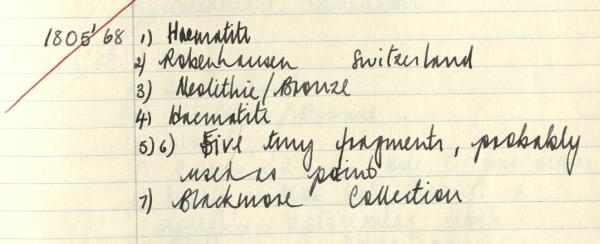 1805' 68 1) Haematite
2) Robenhausen Switzerland
3) Neolithic/Bronze
4) Haematite
5) 6) Five tiny fragments, probably
used as paint
7) Blackmore Collection